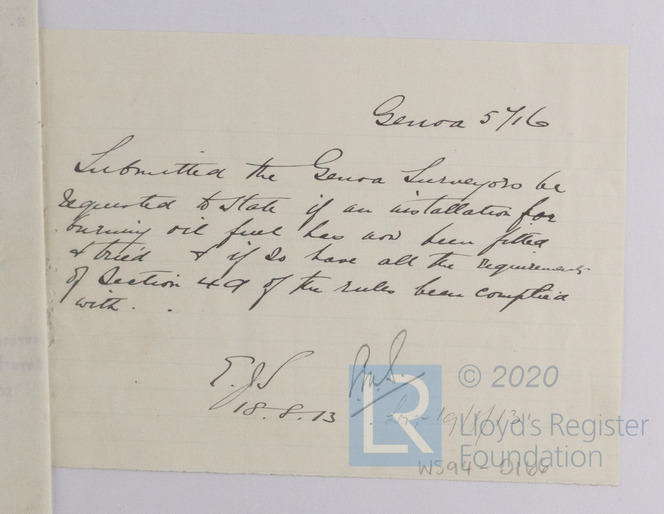 Genoa 5716
Submitted the Genoa Surveyors be
requested to state if an installation for
burning oil fuel has now been fitted
& tried & if so have all the requirements
of Section 49 of the rules been complied
with.
E.J.S
18.8.13
19/8/13
LR
© 2020
Lloyd's Register
Foundation
W594-0160